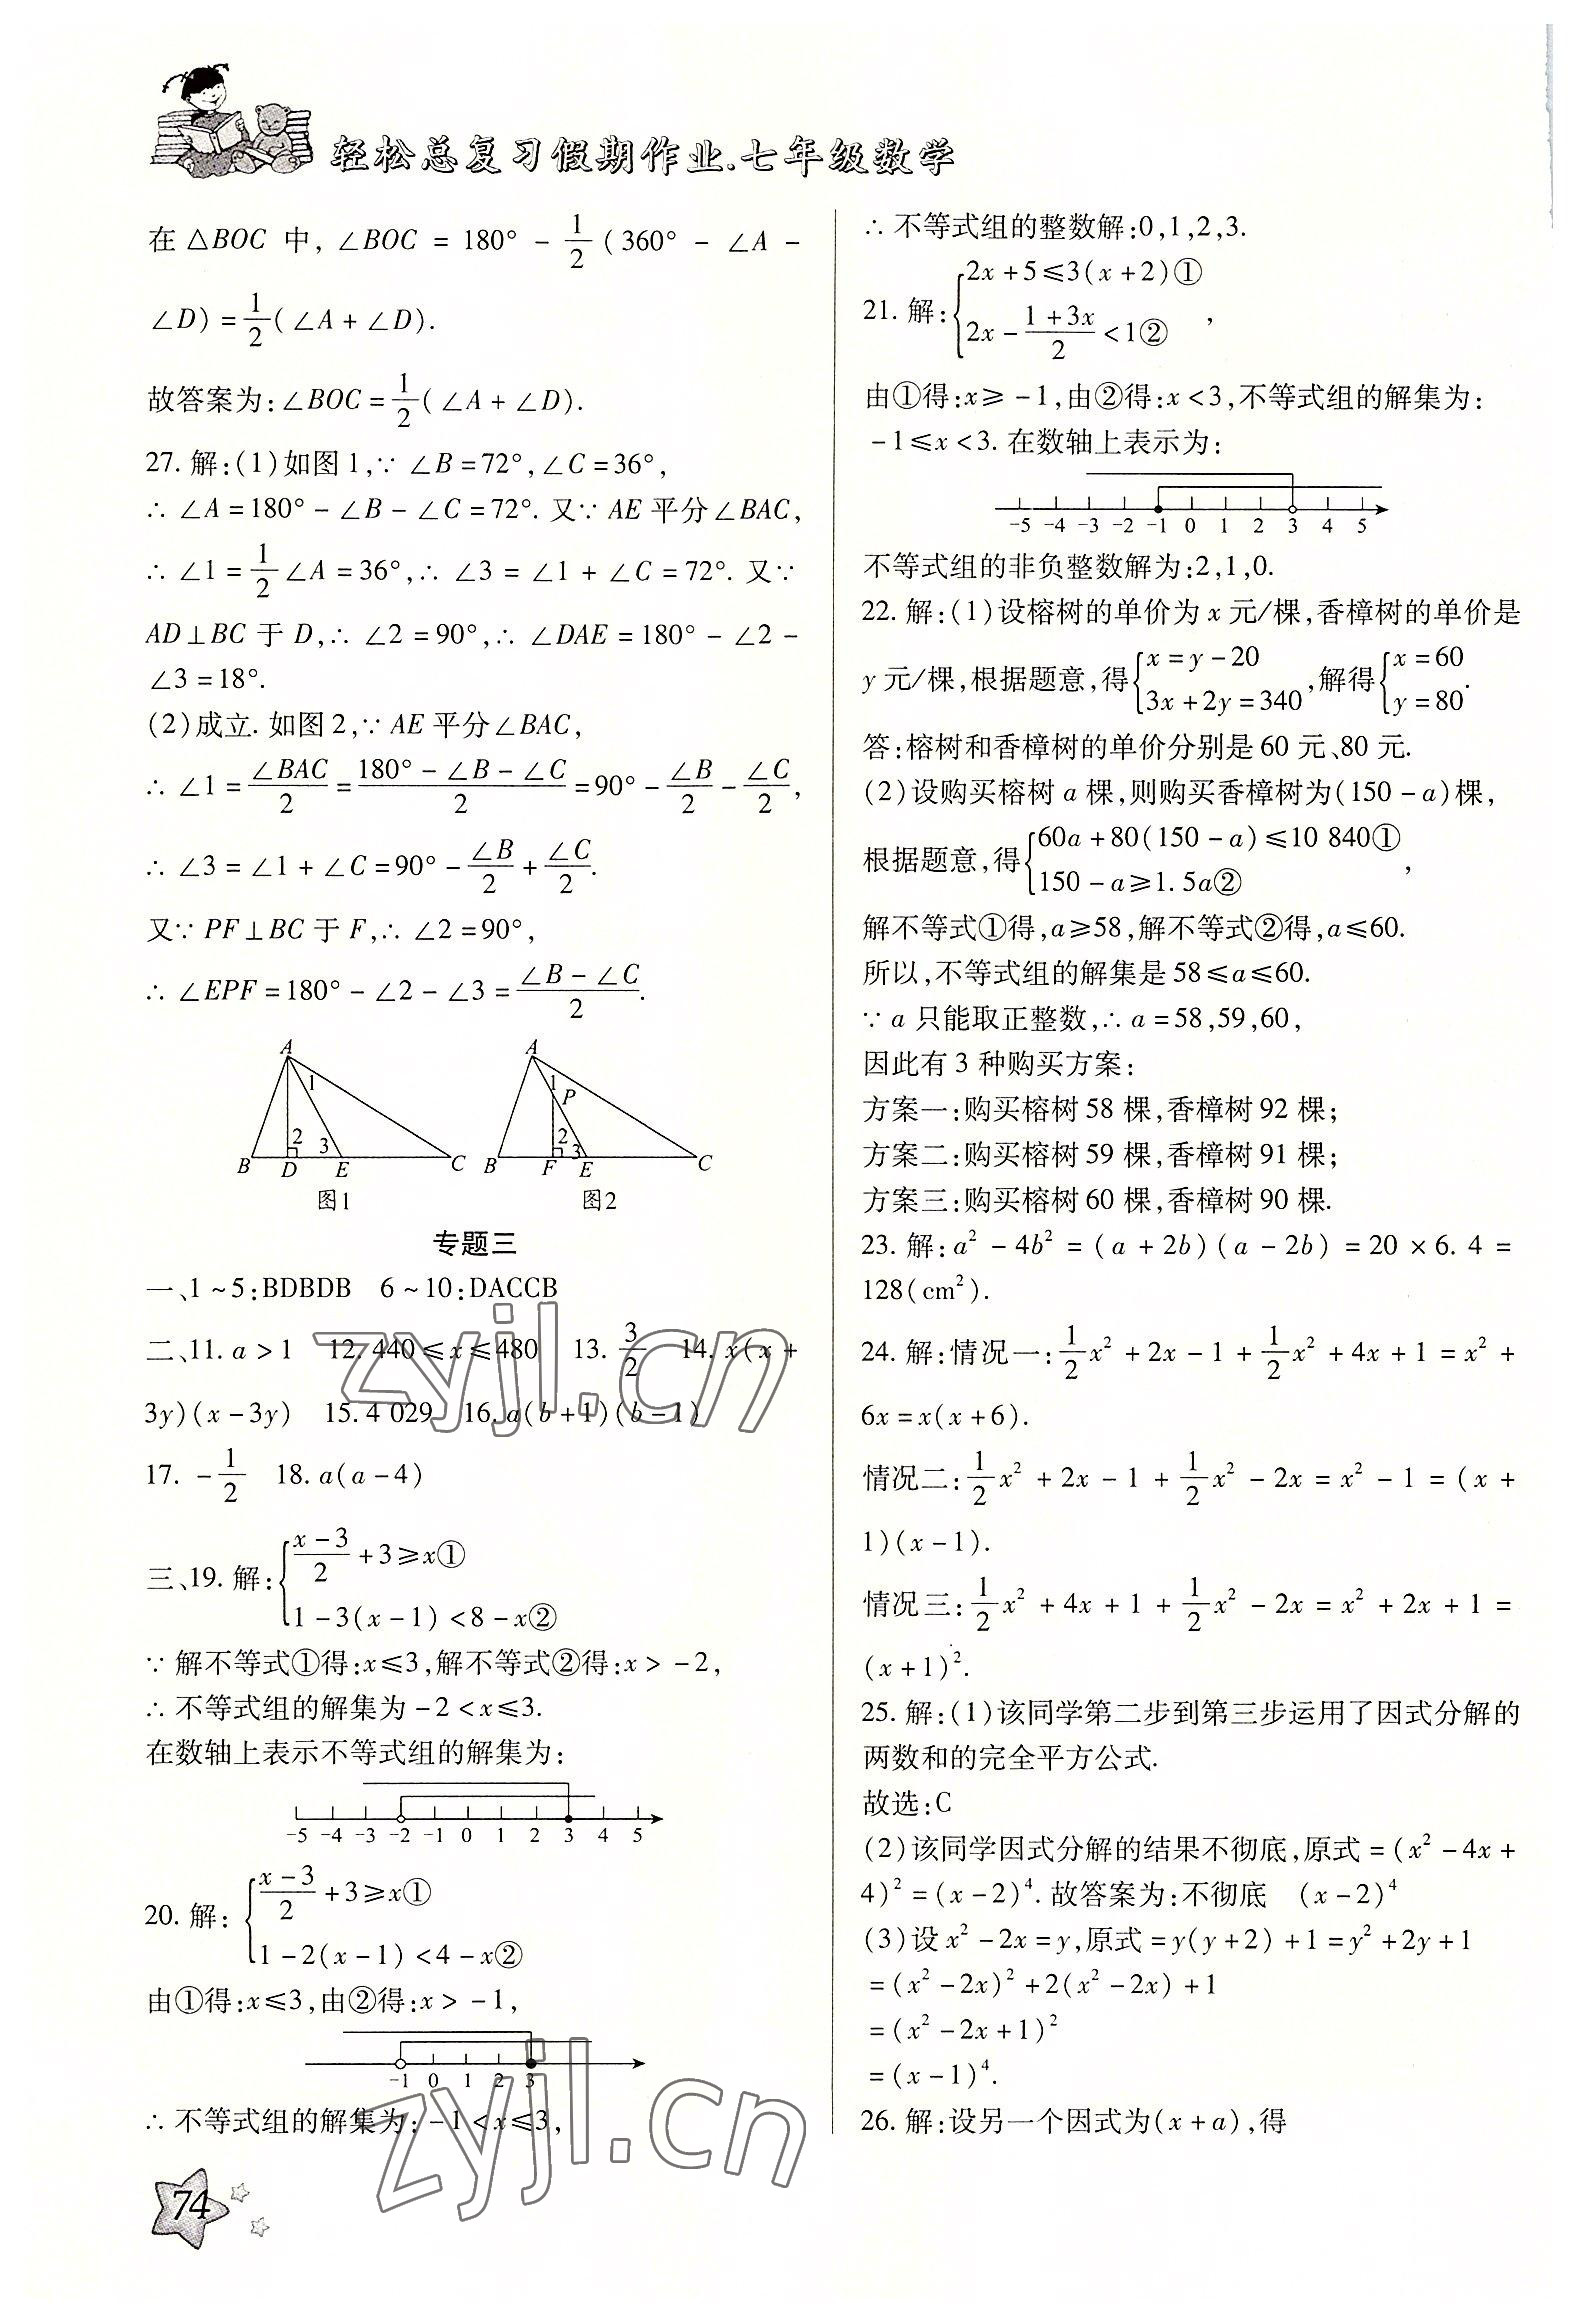 轻松总复习假期作业.七年级数学
在△BOC 中, ∠BOC = 180° - 1/2 (360° - ∠A -
∠D) = 1/2 (∠A + ∠D).
故答案为:∠BOC = 1/2 (∠A + ∠D).
27. 解:(1)如图1,∵ ∠B=72°,∠C=36°,
∴ ∠A=180°-∠B-∠C=72°. 又∵ AE平分∠BAC,
∴ ∠1 = 1/2 ∠A = 36°,∴ ∠3 = ∠1 + ∠C = 72°. 又∵
AD⊥BC 于 D,∴ ∠2 = 90°,∴ ∠DAE = 180° - ∠2 -
∠3 = 18°.
(2)成立. 如图2,∵ AE平分∠BAC,
∴ ∠1 = ∠BAC/2 = (180° - ∠B - ∠C)/2 = 90° - ∠B/2 - ∠C/2,
∴ ∠3 = ∠1 + ∠C = 90° - ∠B/2 + ∠C/2.
又∵ PF⊥BC 于 F,∴ ∠2 = 90°,
∴ ∠EPF = 180° - ∠2 - ∠3 = (∠B - ∠C)/2.
A 1 2 3 B D E C
图1
A 1 P 2 3 B F E C
图2
专题三
一、1~5:BDBDB 6~10:DACCB
二、11. a>1 12. 440≤x≤480 13. 3/2 14. x(x+
3y)(x-3y) 15. 4 029 16. a(b+1)(b-1)
17. -1/2 18. a(a-4)
三、19. 解: { (x-3)/2 +3≥x①
1-3(x-1)<8-x②
∵ 解不等式①得:x≤3,解不等式②得:x>-2,
∴ 不等式组的解集为-2<x≤3.
在数轴上表示不等式组的解集为:
-5 -4 -3 -2 -1 0 1 2 3 4 5
20. 解: { (x-3)/2 +3≥x①
1-2(x-1)<4-x②
由①得:x≤3,由②得:x>-1,
-1 0 1 2 3
∴ 不等式组的解集为:-1<x≤3,
74
∴ 不等式组的整数解:0,1,2,3.
21. 解: { 2x+5≤3(x+2)①
2x-(1+3x)/2<1② ,
由①得:x≥-1,由②得:x<3,不等式组的解集为:
-1≤x<3. 在数轴上表示为:
-5 -4 -3 -2 -1 0 1 2 3 4 5
不等式组的非负整数解为:2,1,0.
22. 解:(1)设榕树的单价为x元/棵,香樟树的单价是
y元/棵,根据题意,得 { x=y-20 3x+2y=340 ,解得 { x=60 y=80 .
答:榕树和香樟树的单价分别是60元、80元.
(2)设购买榕树a棵,则购买香樟树为(150-a)棵,
根据题意,得 { 60a+80(150-a)≤10 840①
150-a≥1.5a② ,
解不等式①得,a≥58,解不等式②得,a≤60.
所以,不等式组的解集是58≤a≤60.
∵ a只能取正整数,∴ a=58,59,60,
因此有3种购买方案:
方案一:购买榕树58棵,香樟树92棵;
方案二:购买榕树59棵,香樟树91棵;
方案三:购买榕树60棵,香樟树90棵.
23. 解:a² - 4b² = (a + 2b)(a - 2b) = 20 × 6.4 =
128(cm²).
24. 解:情况一:1/2 x² + 2x - 1 + 1/2 x² + 4x + 1 = x² +
6x = x(x+6).
情况二:1/2 x² + 2x - 1 + 1/2 x² - 2x = x² - 1 = (x +
1)(x-1).
情况三:1/2 x² + 4x + 1 + 1/2 x² - 2x = x² + 2x + 1 =
(x+1)².
25. 解:(1)该同学第二步到第三步运用了因式分解的
两数和的完全平方公式.
故选:C
(2)该同学因式分解的结果不彻底,原式=(x²-4x+
4)²=(x-2)⁴. 故答案为:不彻底 (x-2)⁴
(3)设x²-2x=y,原式=y(y+2)+1=y²+2y+1
=(x²-2x)²+2(x²-2x)+1
=(x²-2x+1)²
=(x-1)⁴.
26. 解:设另一个因式为(x+a),得
zyjl.cn
zyjl.cn